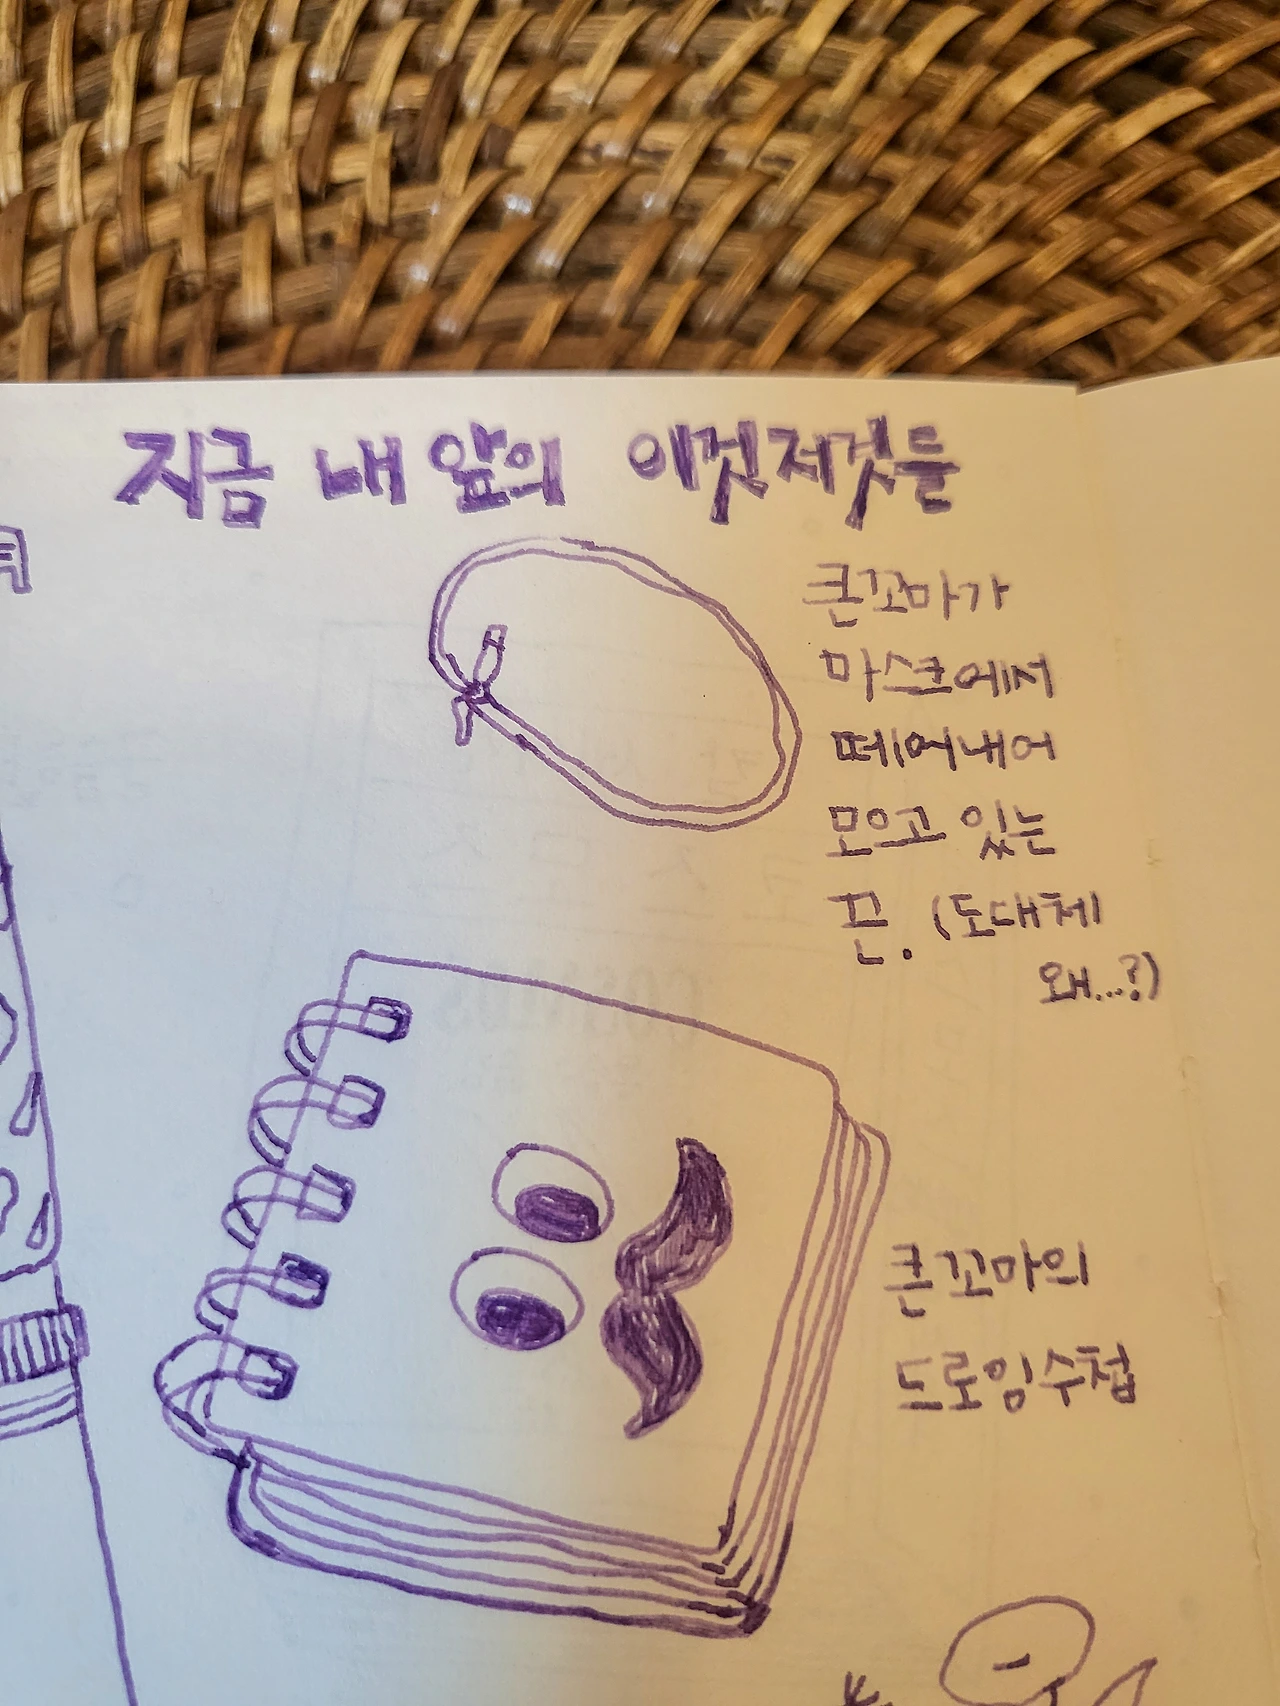 지금 내 앞의 이것저것들
큰꼬마가
마스크에서
떼어내어
모으고 있는
끈. (도대체
왜...?)
큰꼬마의
드로잉수첩